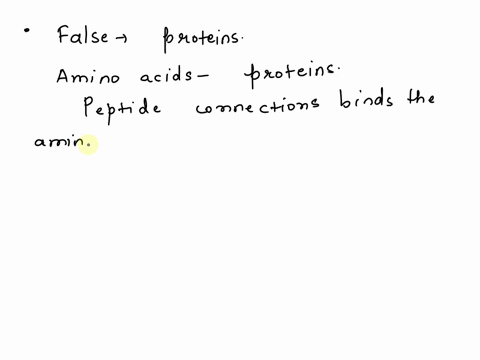 • False → proteins.
Amino acids – proteins.
Peptide connections binds the
amin.